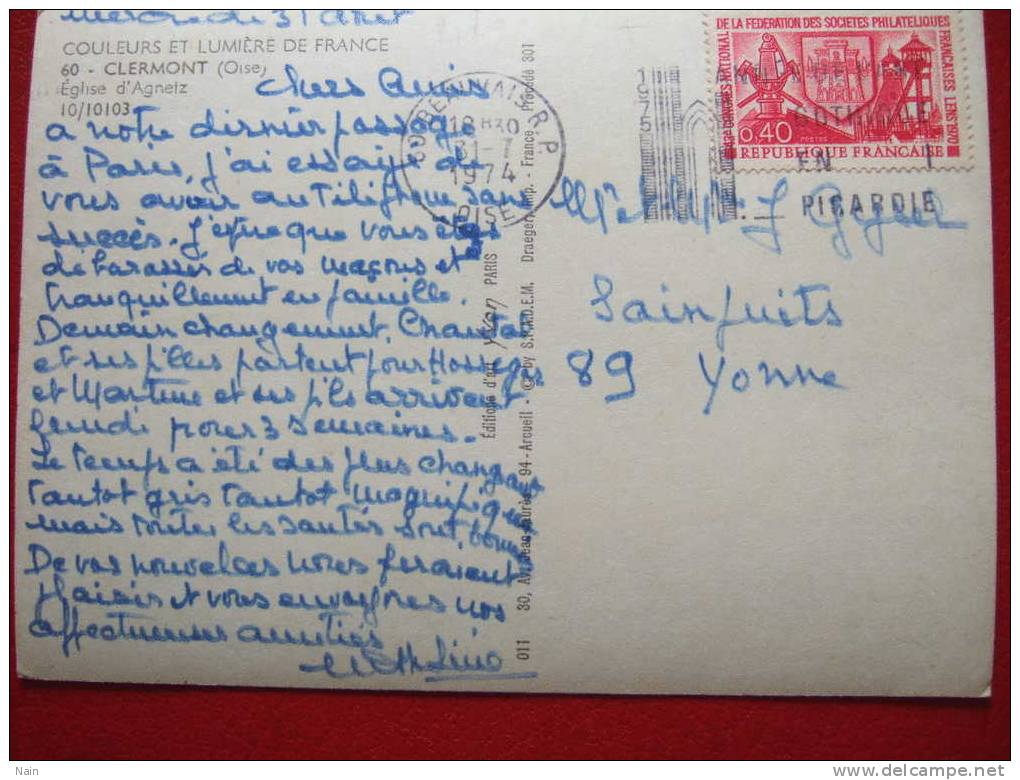 Mercredi 31
COULEURS ET LUMIÈRE DE FRANCE
60 - CLERMONT (Oise)
Église d'Agnetz
10/10103
Chers Amis
a notre dernier passage
à Paris, j'ai essayé de
vous avoir au Téléphone sans
succès. J'espère que vous êtes
débarassés de vos maçons et
tranquillement en famille.
Demain changement, Chantal
et ses filles partent pour Hossegor
et Martine et ses fils arrivent
jeudi pour 3 semaines.
Le temps a été des plus changeant
tantot gris tantot magnifique
mais toutes les santés sont bonnes
De vos nouvelles nous feraient
plaisir et vous envoyons nos
affectueuses amitiés
011 30, Av. Jean-Jaurès - 94-Arcueil - © by S.P.A.D.E.M. Draeger Imp. - France Procédé 301
Éditions d'art yvon PARIS
60 BEAUVAIS R.P.
18H30
31-7
1974
OISE
1975
GOTHIQUE
EN
PICARDIE
DE LA FEDERATION DES SOCIETES PHILATELIQUES
FRANCAISES LENS 1970
43e CONGRES NATIONAL
0,40
POSTES
REPUBLIQUE FRANCAISE
Mr et Mme J
Sainpuits
89 Yonne
Nain
www.delcampe.net